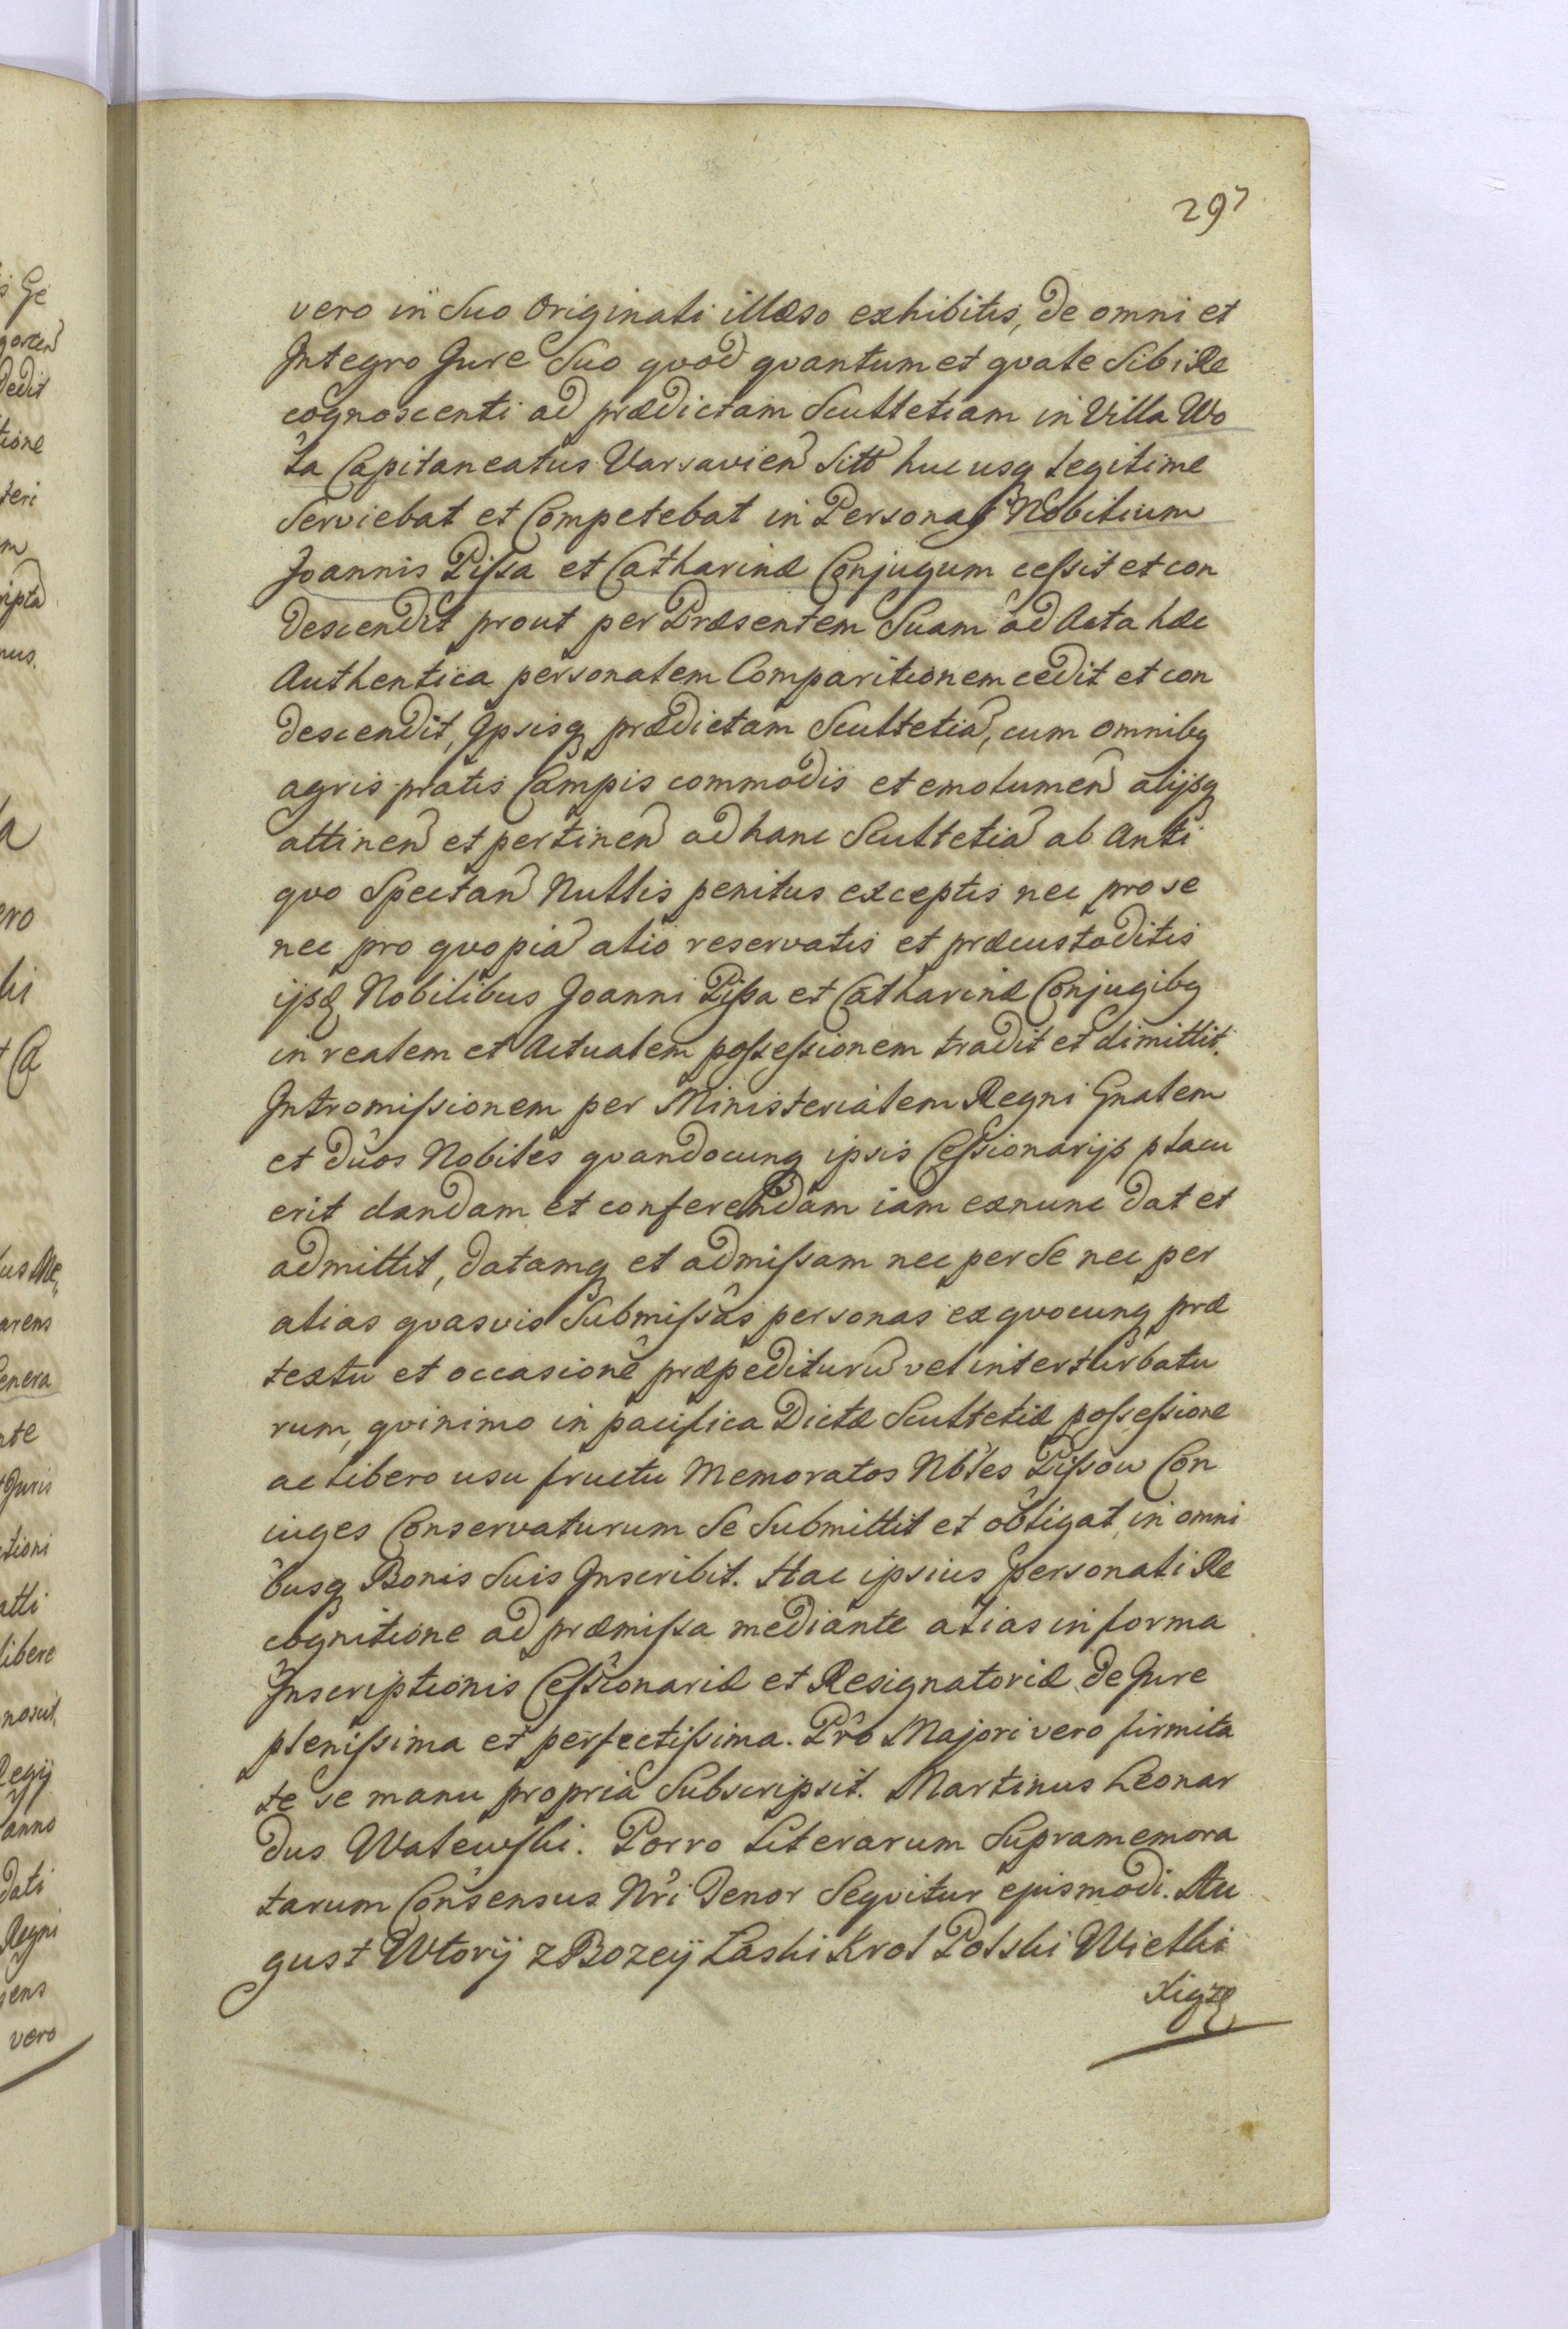 297
vero in Suo Originali illæso exhibitis, de omni et
Integro Jure Suo qvod qvantum et qvale Sibi Re
cognoscenti ad prædictam Scultetiam in Villa Wo
la Capitaneatus Varsavien Sitt huc usq legitime
Serviebat et Competebat in Personas Nobilium
Joannis Pissa et Catharinæ Conjugum cessit et con
descendit prout per Præsentem Suam ad Acta hæc
Authentica personalem Comparitionem cedit et con
descendit, Ipsisq prædictam Scultetia, cum omnibq
agris pratis Campis commodis et emolumen alijsq
attinen et pertinen ad hanc Scultetia ab Anti
qvo Spectan Nullis penitus exceptis nec pro se
nec pro qvopia alio reservatis et præcustoditis
ijsq Nobilibus Joanni Pissa et Catharinæ Conjugibq
in realem et Actualem possessionem tradit et dimittit.
Intromissionem per Ministerialem Regni Gnalem
et duos Nobiles qvandocunq ipsis Cessionarijs placu
erit dandam et conferendam iam exnunc dat et
admittit, datamq et admissam nec per Se nec per
alias qvasvis Submissas personas ex qvocunq præ
textu et occasione præpedituru vel interturbatu
rum, qvinimo in pacifica Dictæ Scultetiæ possessione
ac libero usu fructu Memoratos Nbles Pissow Con
iuges Conservaturum Se Submittit et obligat, in omni
busq Bonis Suis Inscribit. Hac ipsius personali Re
cognitione ad præmissa mediante alias in forma
Inscriptionis Cessionariæ et Resignatoriæ de Jure
plenissima et perfectissima. Pro Majori vero firmita
te se manu propria Subscripsit. Martinus Leonar
dus Walewski. Porro Literarum Supramemora
tarum Consensus Nri Tenor Seqvitur ejusmodi. Au
gust Wtory z Bozey Laski Krol Polski Wielki
Xiąze